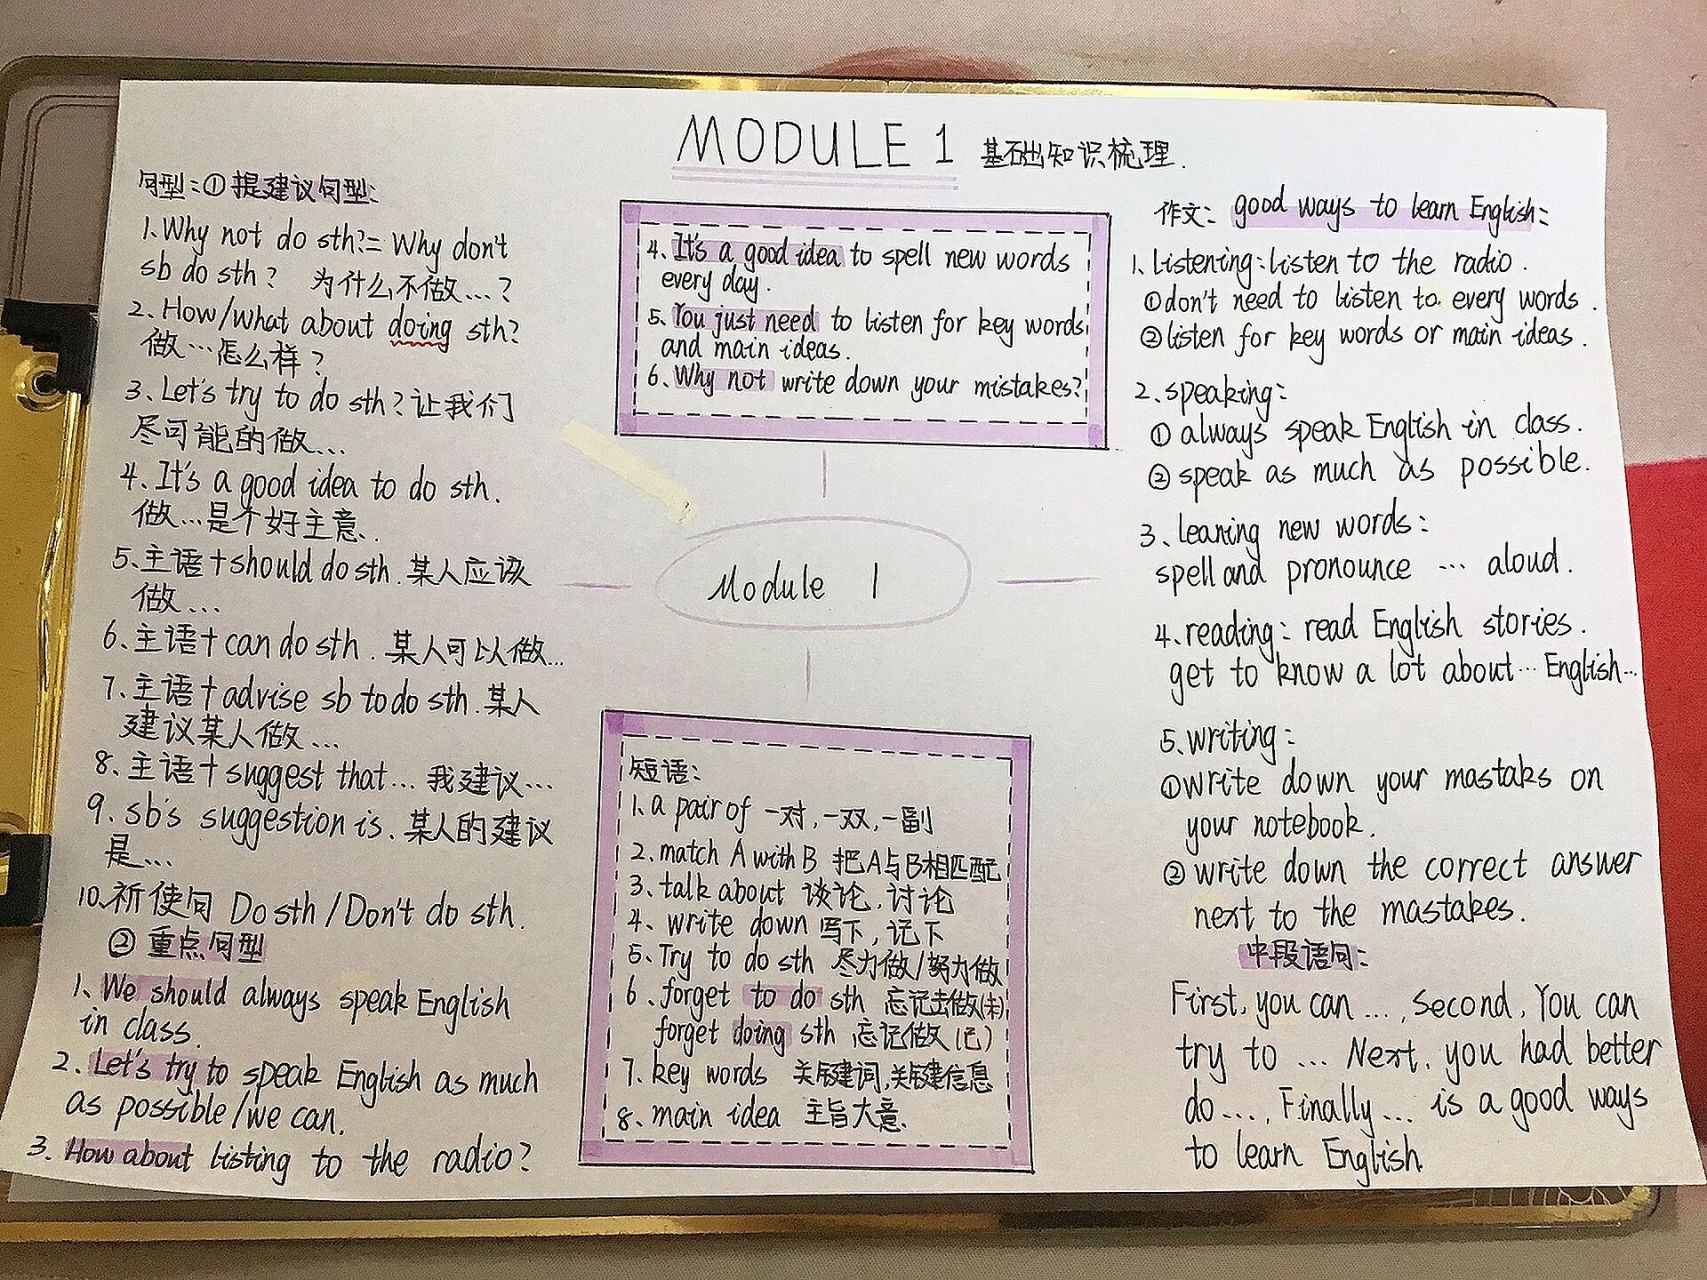 MODULE 1 基础知识梳理.
句型:①提建议句型:
1.Why not do sth?= Why don't
sb do sth? 为什么不做...?
2.How/what about doing sth?
做...怎么样?
3.Let's try to do sth?让我们
尽可能的做...
4.It's a good idea to do sth.
做...是个好主意.
5.主语+should do sth.某人应该
做...
6.主语+can do sth.某人可以做...
7.主语+advise sb to do sth.某人
建议某人做...
8.主语+suggest that...我建议...
9.sb's suggestion is.某人的建议
是...
10.祈使句 Do sth/Don't do sth.
②重点句型
1、We should always speak English
in class.
2.Let's try to speak English as much
as possible/we can.
3.How about listing to the radio?
4.It's a good idea to spell new words
every day.
5.You just need to listen for key words
and main ideas.
6.Why not write down your mistakes?
Module 1
短语:
1.a pair of 一对,一双,一副
2.match A with B 把A与B相匹配
3.talk about 谈论,讨论
4.write down 写下,记下
5.Try to do sth 尽力做/努力做
6.forget to do sth 忘记去做(未)
forget doing sth 忘记做(已)
7.key words 关键词,关键信息
8.main idea 主旨大意.
作文: good ways to learn English:
1.listening:listen to the radio.
①don't need to listen to every words.
②listen for key words or main ideas.
2.speaking:
①always speak English in class.
②speak as much as possible.
3、leaning new words:
spell and pronounce ... aloud.
4.reading: read English stories.
get to know a lot about...English...
5.writing:
①write down your mastaks on
your notebook.
②write down the correct answer
next to the mastakes.
中段语句:
First, you can ..., second, You can
try to ... Next, you had better
do..., Finally... is a good ways
to learn English.